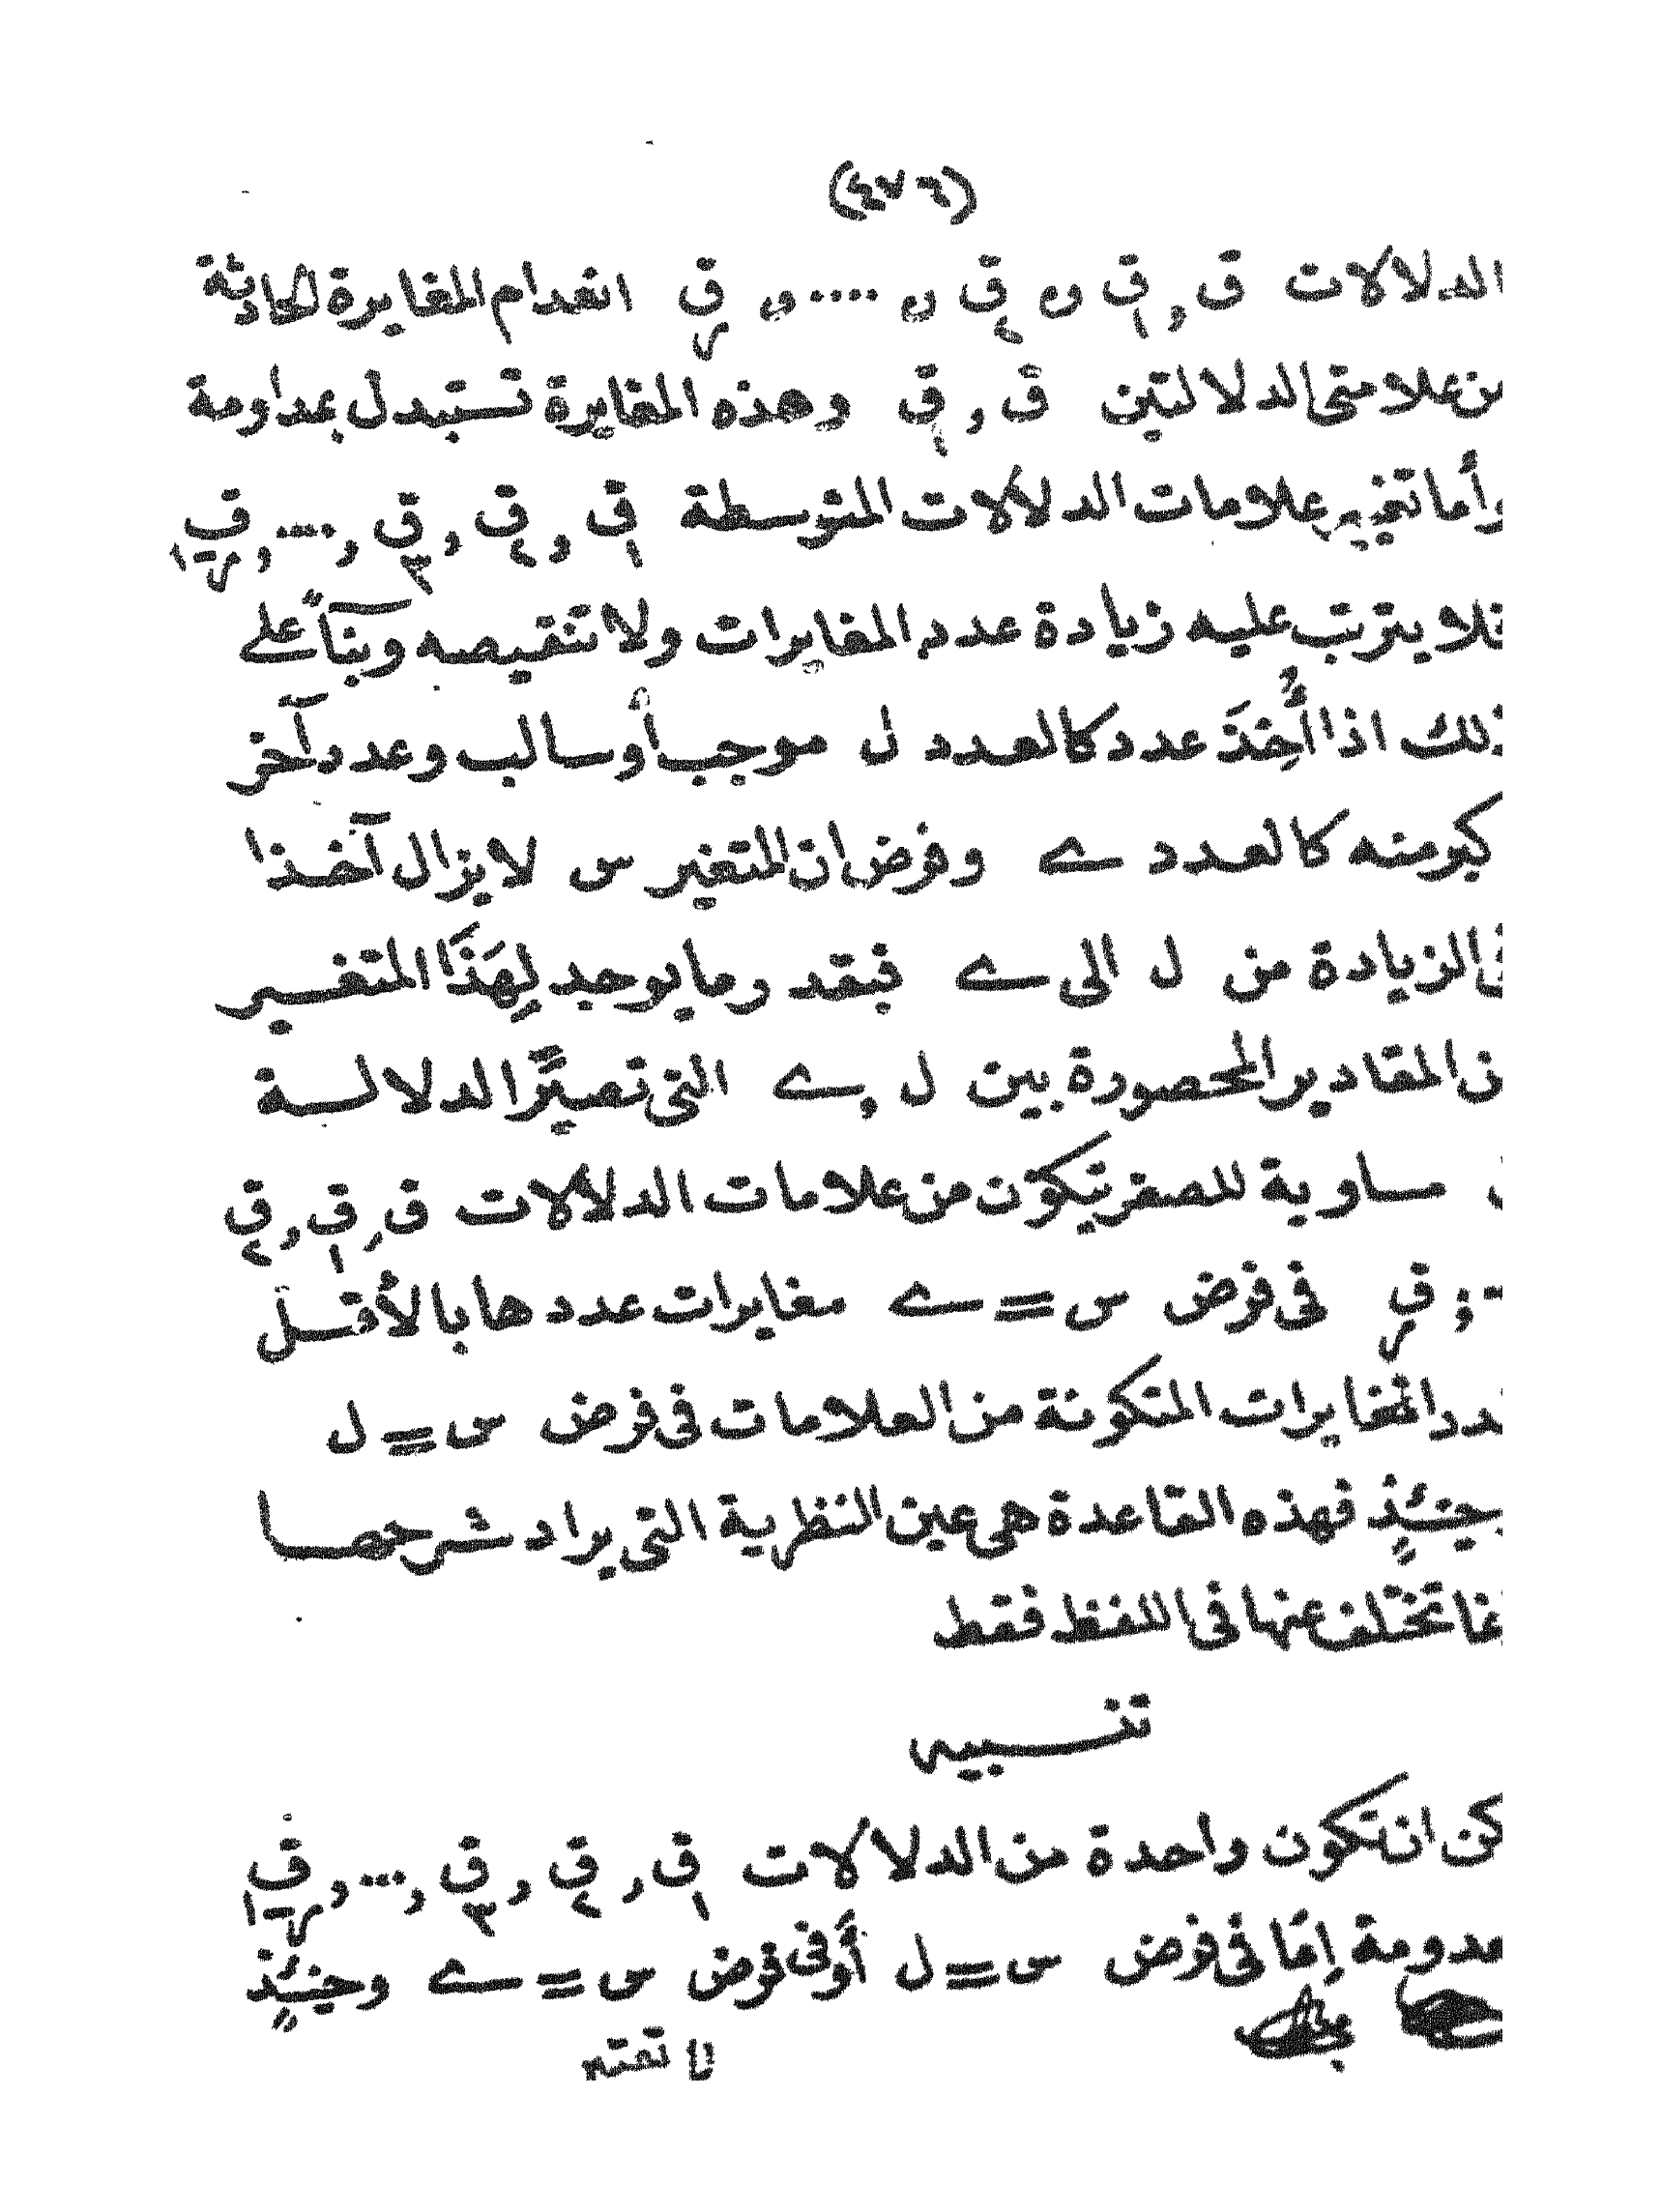 (٤٧٦)
الدلالات ق و ق١ و ق٢ و .... و قر انعدام المغايرة الحادثة
من علامتى الدلالتين ق و ق١ وهذه المغايرة تستبدل بمداومة
وأما تغيير علامات الدلالات المتوسطة ق١ و ق٢ و ق٣ و ... و قر-١
فلا يترتب عليه زيادة عدد المغايرات ولا تنقيصه وبنآءً على
ذلك اذا أُخِذَ عدد كالعدد ل موجب أو سالب وعدد آخر
كبر منه كالعدد ے وفرض ان المتغير س لا يزال آخذا
فى الزيادة من ل الى ے فبقدر ما يوجد لِهَذَا المتغير
من المقادير المحصورة بين ل و ے التى تصيِّر الدلالة
مساوية للصفر يتكوّن من علامات الدلالات ق و ق١ و ق٢
و قر فى فرض س = ے مغايرات عددها بالأقل
عدد المغايرات المتكونة من العلامات فى فرض س = ل
وحينئذٍ فهذه القاعدة هى عين النظرية التى يراد شرحها
انما تختلف عنها فى اللفظ فقط
تنبيه
يمكن ان تكون واحدة من الدلالات ق١ و ق٢ و ق٣ و ... و قر-١
معدومة إمّا فى فرض س = ل أو فى فرض س = ے وحينئذٍ
لا تعتبر